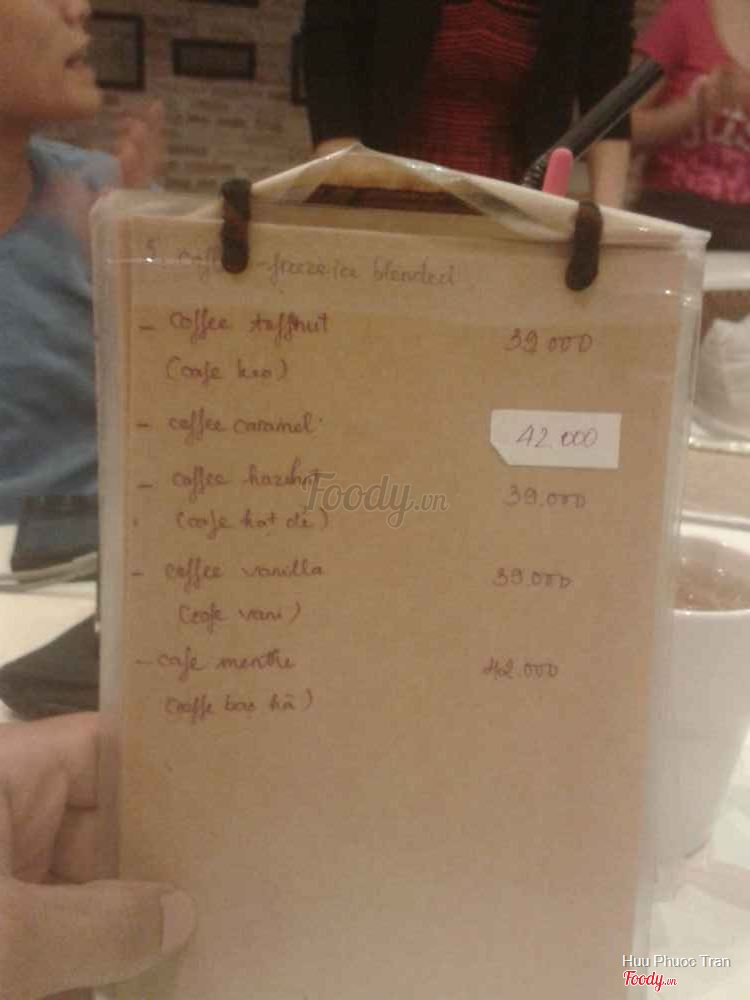 5. Coffee - freeze ice blended
- Coffee toffnut 39 000
(cafe keo)
- coffee caramel 42.000
- coffee hazelnut 39.000
(cafe hạt dẻ)
- coffee vanilla 39.000
(cafe vani)
- cafe menthe 42.000
(caffe bạc hà)
Foody.vn
Huu Phuoc Tran
Foody.vn